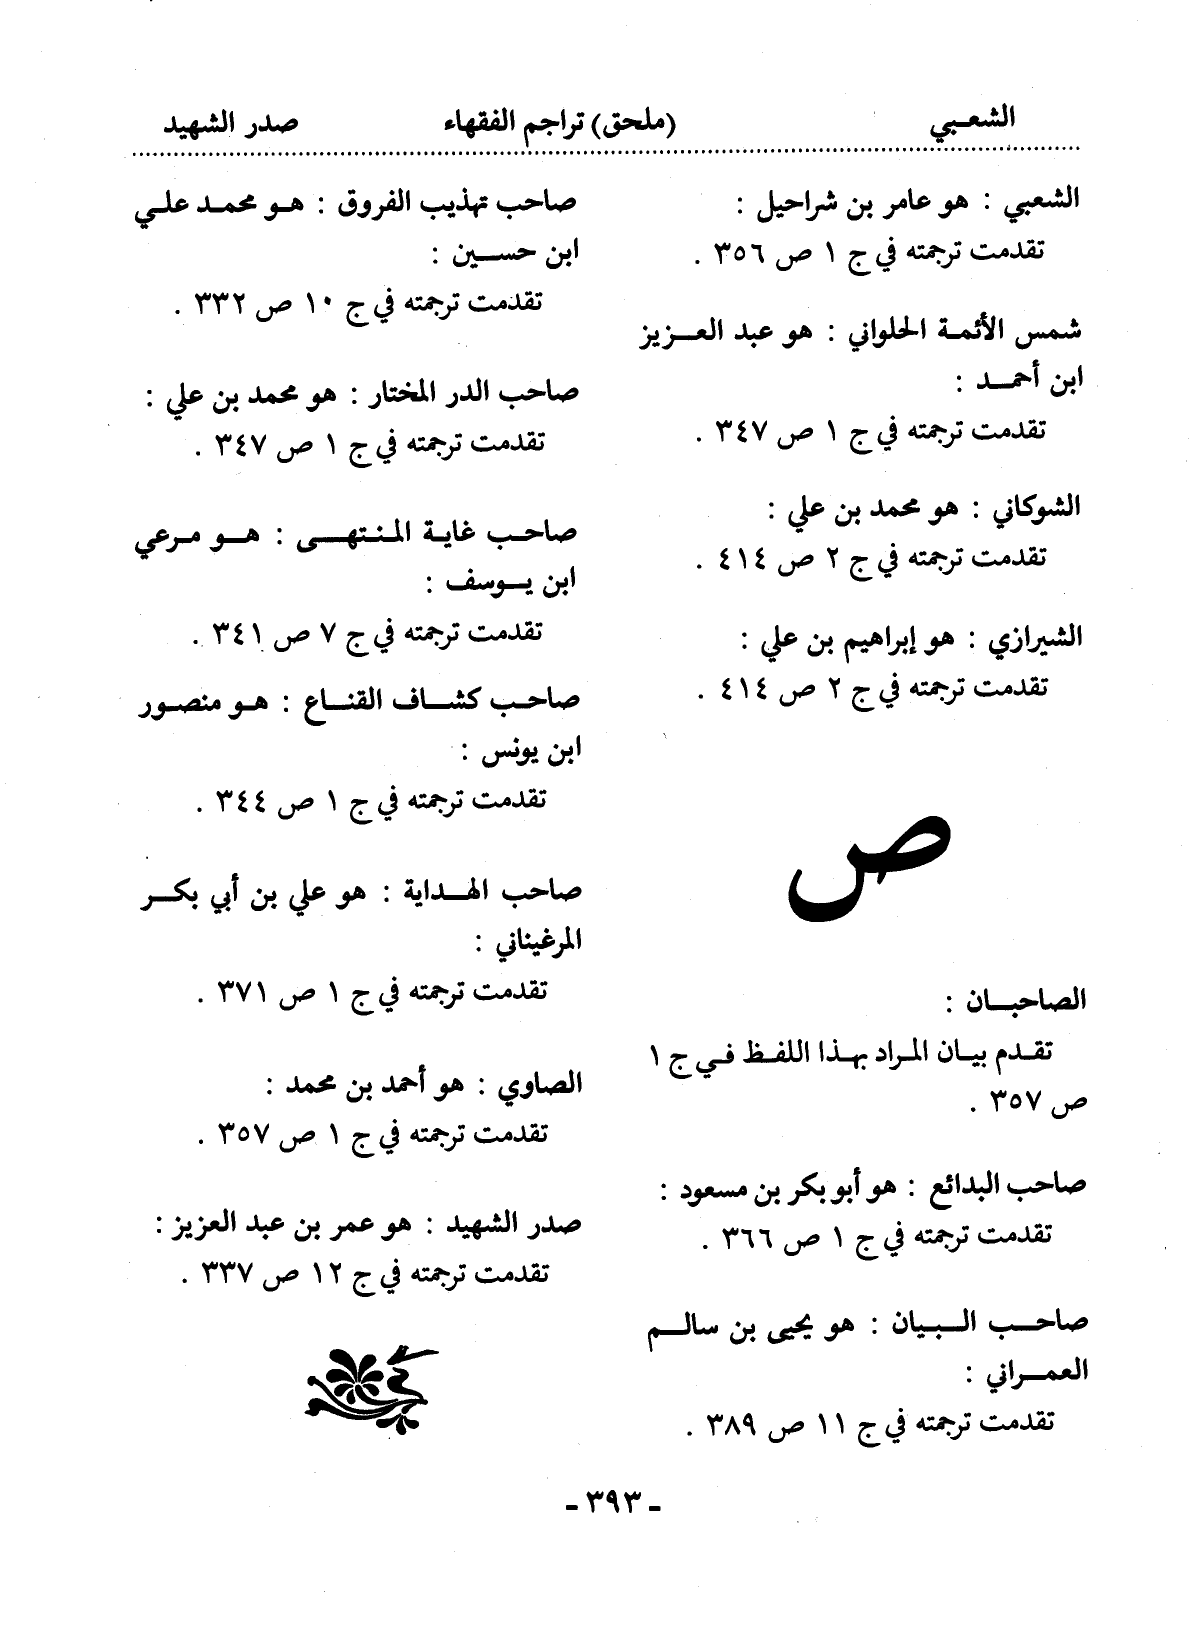 الشعبي (ملحق) تراجم الفقهاء صدر الشهيد
الشعبي : هو عامر بن شراحيل :
تقدمت ترجمته في ج ١ ص ٣٥٦ .
شمس الأئمة الحلواني : هو عبد العزيز
ابن أحمد :
تقدمت ترجمته في ج ١ ص ٣٤٧ .
الشوكاني : هو محمد بن علي :
تقدمت ترجمته في ج ٢ ص ٤١٤ .
الشيرازي : هو إبراهيم بن علي :
تقدمت ترجمته في ج ٢ ص ٤١٤ .
ص
الصاحبان :
تقدم بيان المراد بهذا اللفظ في ج ١
ص ٣٥٧ .
صاحب البدائع : هو أبو بكر بن مسعود :
تقدمت ترجمته في ج ١ ص ٣٦٦ .
صاحب البيان : هو يحيى بن سالم
العمراني :
تقدمت ترجمته في ج ١١ ص ٣٨٩ .
صاحب تهذيب الفروق : هو محمد علي
ابن حسين :
تقدمت ترجمته في ج ١٠ ص ٣٣٢ .
صاحب الدر المختار : هو محمد بن علي :
تقدمت ترجمته في ج ١ ص ٣٤٧ .
صاحب غاية المنتهى : هو مرعي
ابن يوسف :
تقدمت ترجمته في ج ٧ ص ٣٤١ .
صاحب كشاف القناع : هو منصور
ابن يونس :
تقدمت ترجمته في ج ١ ص ٣٤٤ .
صاحب الهداية : هو علي بن أبي بكر
المرغيناني :
تقدمت ترجمته في ج ١ ص ٣٧١ .
الصاوي : هو أحمد بن محمد :
تقدمت ترجمته في ج ١ ص ٣٥٧ .
صدر الشهيد : هو عمر بن عبد العزيز :
تقدمت ترجمته في ج ١٢ ص ٣٣٧ .
- ٣٩٣ -